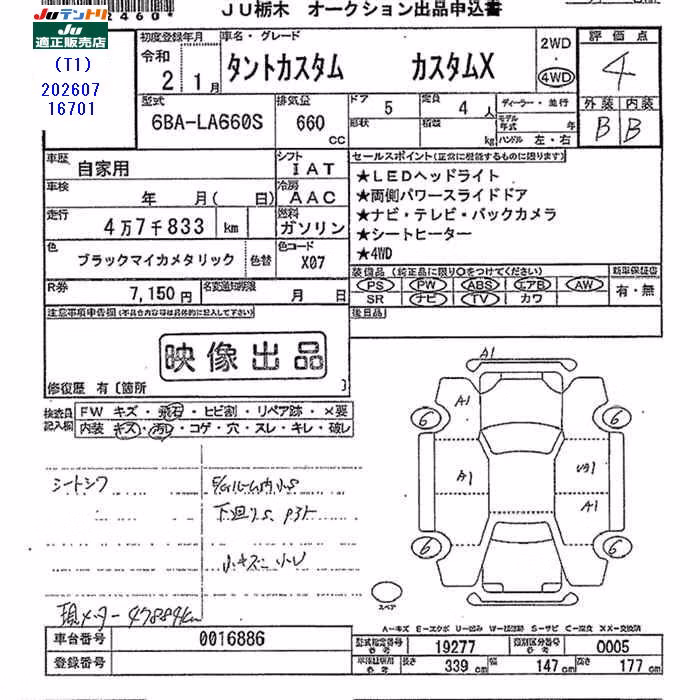 2460*
JU栃木 オークション出品申込書
JUテントリ
JU 適正販売店
(T1)
202607
16701
初度登録年月
令和
2 1月
車名・グレード
タントカスタム カスタムX
2WD
・
4WD
評価点
4
外装 内装
B B
型式
6BA-LA660S
排気量
660
CC
ドア 5 定員 4人
形状 積載 kg
ディーラー・並行
モデル年式 年
ハンドル 左・右
車歴
自家用
シフト
IAT
車検
年 月( 日)
冷房
AAC
走行
4万7千833 km
燃料
ガソリン
色
ブラックマイカメタリック
色替
色コード
X07
R券
7,150円
名変通知期限
月 日
セールスポイント(正常に機能するものに限ります)
★LEDヘッドライト
★両側パワースライドドア
★ナビ・テレビ・バックカメラ
★シートヒーター
★4WD
装備品(純正品に限り○をつけてください)
PS PW ABS エアB AW
SR ナビ TV カワ
新車保証書
有・無
後日品
注意事項申告欄(不具合内容は具体的に記入して下さい)
映像出品
修復歴 有〔箇所 〕
検査員記入欄
FW キズ・飛石・ヒビ割・リペア跡・×要
内装 キズ・汚レ・コゲ・穴・スレ・キレ・破レ
シートシワ
下廻りS
小キズ 小U
現メーター 47884km
A1
A1
6 6
A1
A1
6 6
スペア
A-キズ E-エクボ U-凹み W-板跡 S-サビ C-腐食 XX-交換済
車台番号 0016886
登録番号
型式指定番号 参考 19277
類別区分番号 参考 0005
車庫証明用 参考 長さ 339cm 幅 147cm 高さ 177cm